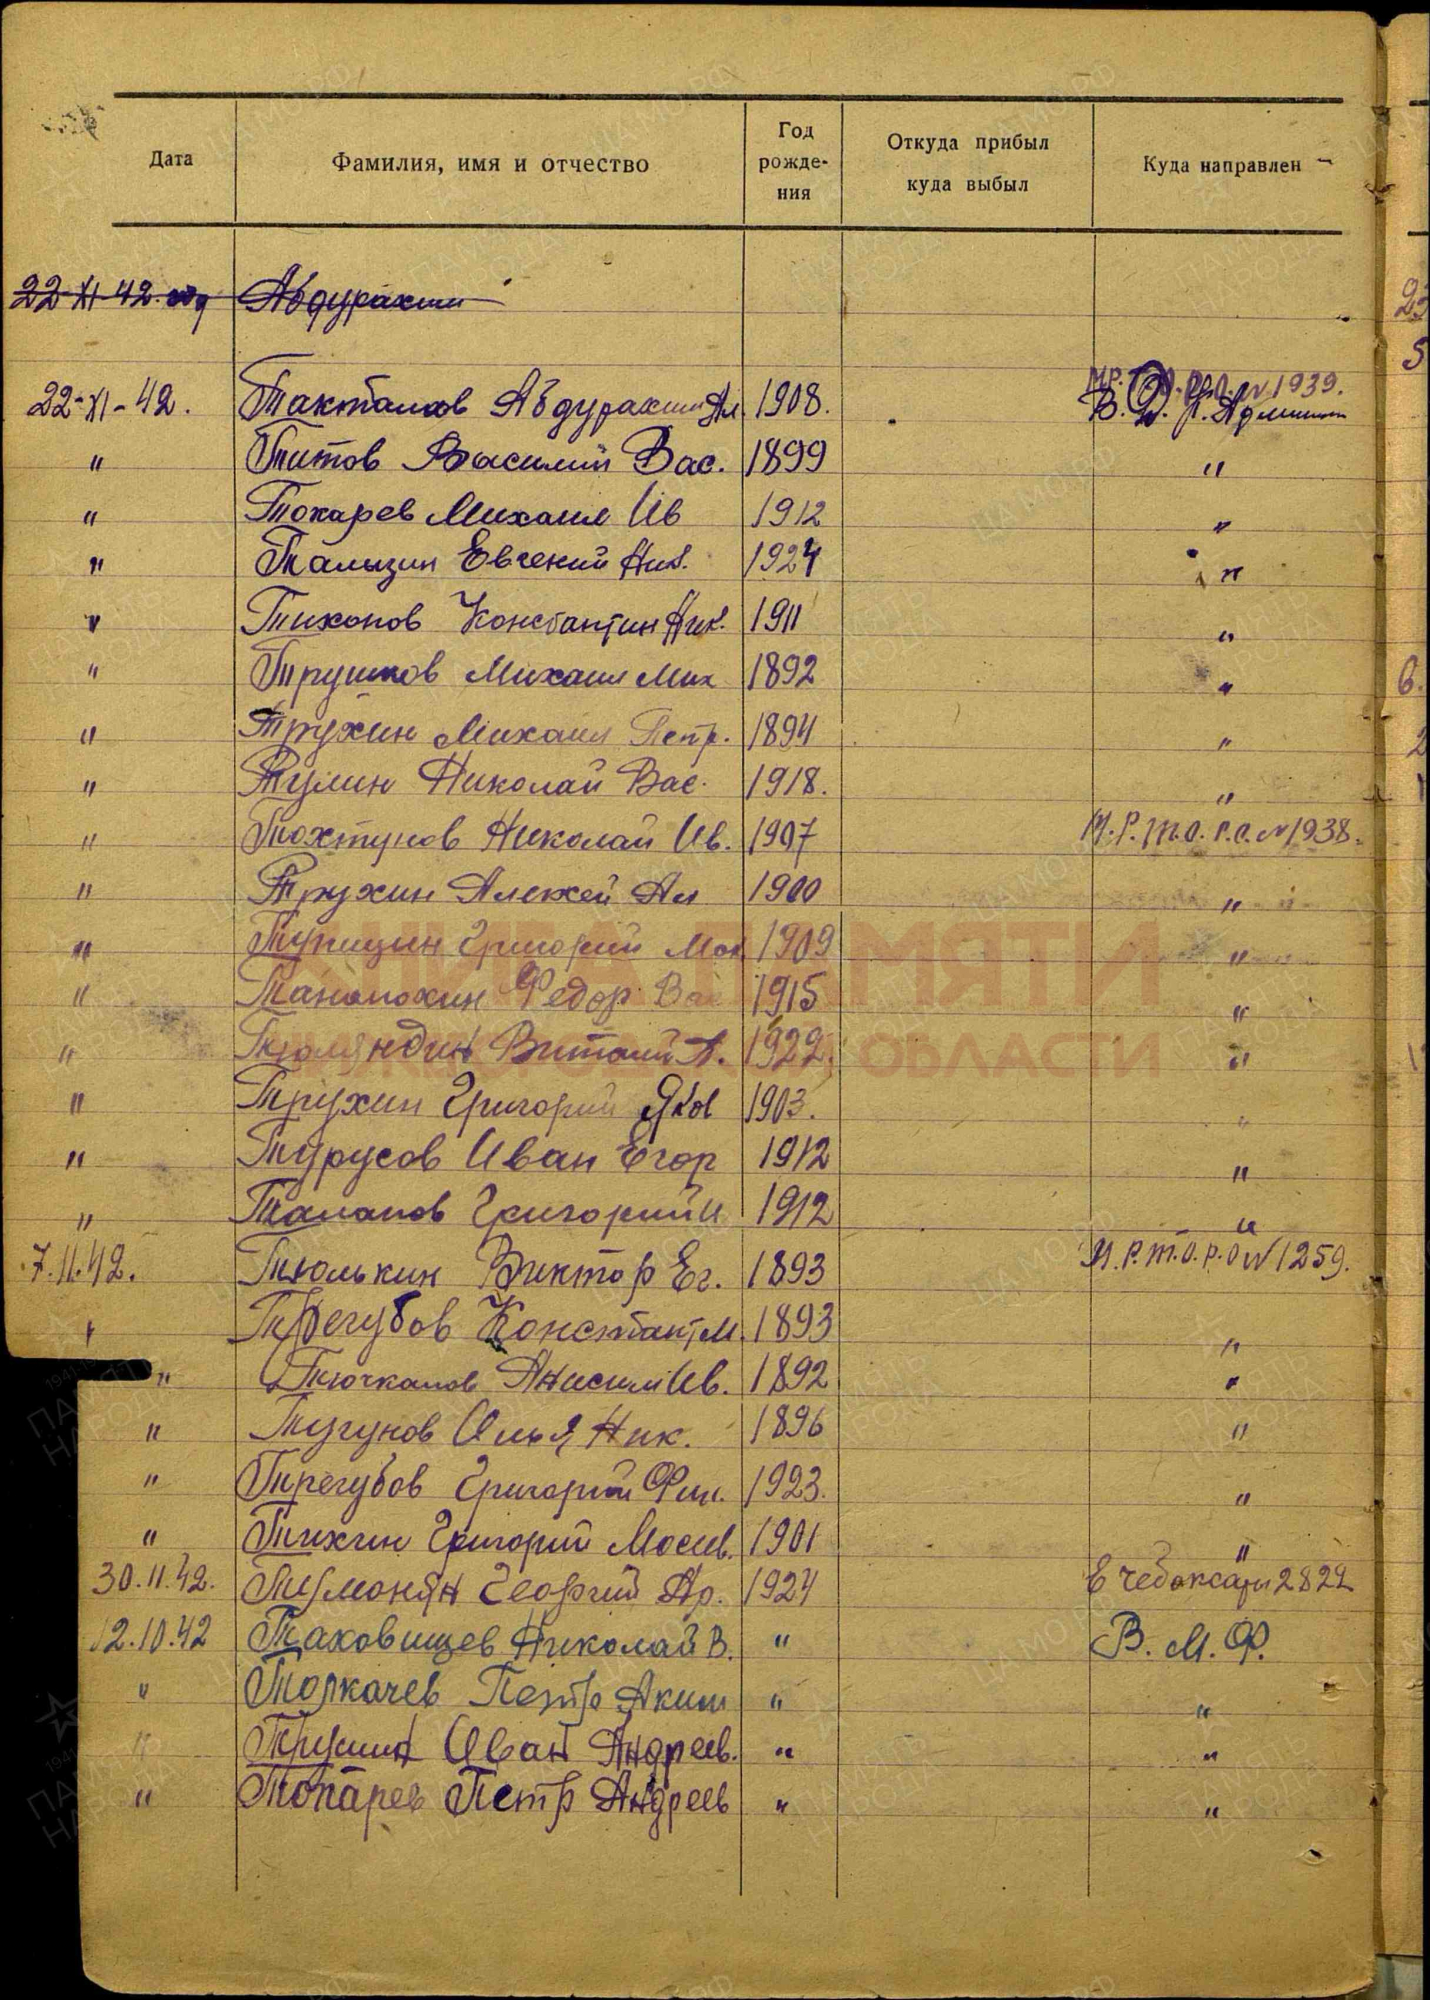 Дата Фамилия, имя и отчество Год рожде- ния Откуда прибыл куда выбыл Куда направлен
22-XI-42. год Абдурахми
МР. № 1939.
22-XI-42. Такталов Абдурахми Ал. 1908. В. О. К. Админист
" Титов Василий Вас. 1899 "
" Токарев Михаил Ив 1912 "
" Талызин Евгений Ник. 1924 "
" Тихонов Константин Ник. 1911 "
" Трушков Михаил Мих 1892 "
" Трухин Михаил Петр. 1894 "
" Тулин Николай Вас. 1918. "
" Тохтунов Николай Ив. 1907 М.Р.т.о.г.с. № 1938.
" Трухин Алексей Ал 1900 "
" Тупицин Григорий Мак 1909 "
" Танапохин Федор Вас 1915 "
" Тюляндин Виталий А. 1922. "
" Трухин Григорий Яков 1903. "
" Турусов Иван Егор 1912 "
" Таланов Григорий И 1912 "
7.11.42. Тюлькин Виктор Ег. 1893 М.Р.т.о.р.о № 1259.
" Трегубов Константин М. 1893 "
" Тючкалов Анисим Ив. 1892 "
" Тугунов Илья Ник. 1896 "
" Трегубов Григорий Фил. 1923. "
" Тихгин Григорий Мосев. 1901 "
30.11.42. Тумонян Георгий Ар. 1924 Г Чебоксары 2822
12.10.42 Таховищев Николай В. " В. М. Ф.
" Толкачев Петр Аким " "
" Трушин Иван Андреев. " "
" Токарев Петр Андреев " "
КНИГА ПАМЯТИ
НИЖЕГОРОДСКОЙ ОБЛАСТИ